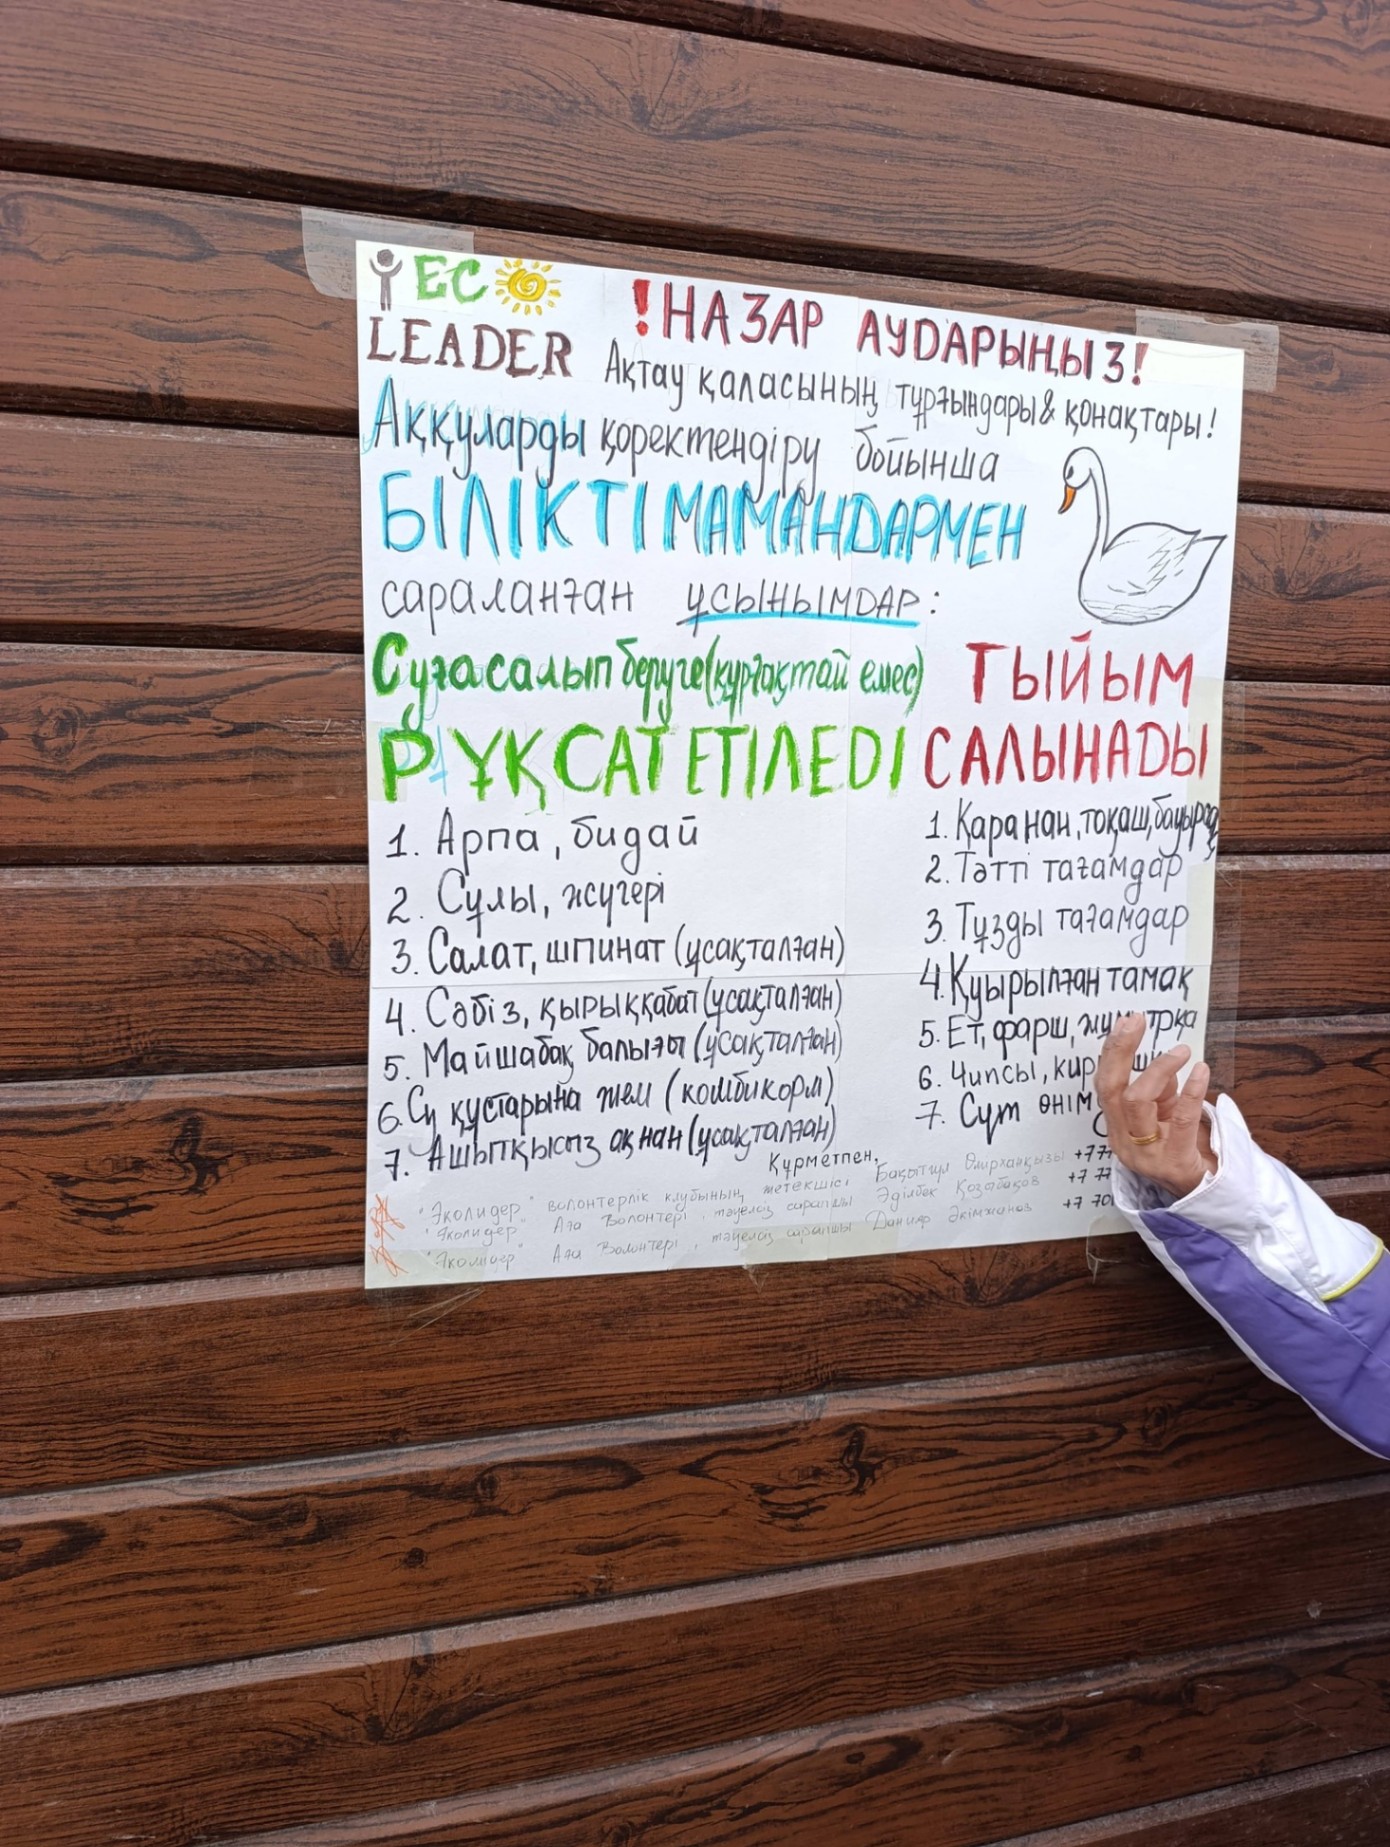 ECO
LEADER
! НАЗАР АУДАРЫҢЫЗ!
Ақтау қаласының тұрғындары & қонақтары!
Аққуларды қоректендіру бойынша
БІЛІКТІ МАМАНДАРМЕН
сараланған ұсынымдар:
Суға салып беруге (құрғақтай емес)
РҰҚСАТ ЕТІЛЕДІ
1. Арпа, бидай
2. Сұлы, жүгері
3. Салат, шпинат (ұсақталған)
4. Сәбіз, қырыққабат (ұсақталған)
5. Майшабақ балығы (ұсақталған)
6. Су құстарына жем (комбикорм)
7. Ашытқысыз ақ нан (ұсақталған)
ТЫЙЫМ
САЛЫНАДЫ
1. Қара нан, тоқаш, бауырсақ
2. Тәтті тағамдар
3. Тұзды тағамдар
4. Қуырылған тамақ
5. Ет, фарш,
6. Чипсы,
7. Сүт
Құрметпен,
"Эколидер" волонтерлік клубының жетекшісі Бақытгүл Өмірханқызы +777
"Эколидер" Аға Волонтері, тәуелсіз сарапшы Әділбек Қозыбақов +7 77
"Эколидер" Аға Волонтері, тәуелсіз сарапшы Данияр Әкімжанов +7 701